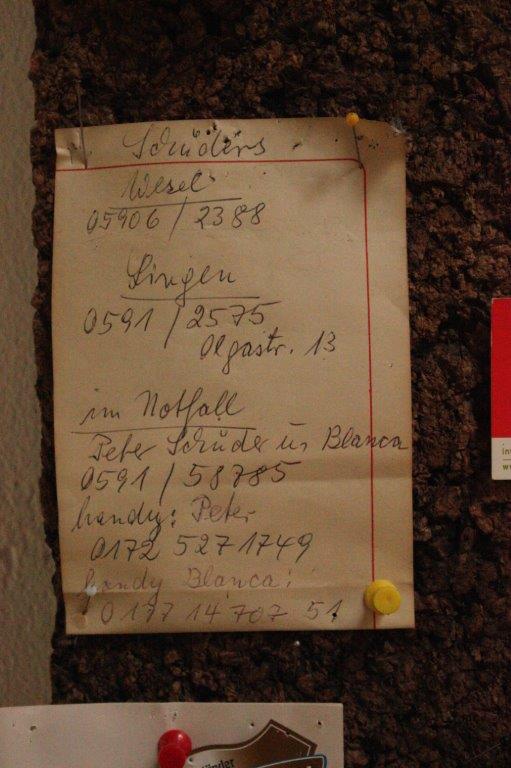 Schüders
Wesel
05906 / 2388
Lingen
0591 / 2575
Olgastr. 13
im Notfall
Peter Schüder u, Blanca
0591 / 58785
handy: Peter
0172 5271749
handy Blanca:
0177 14 707 51